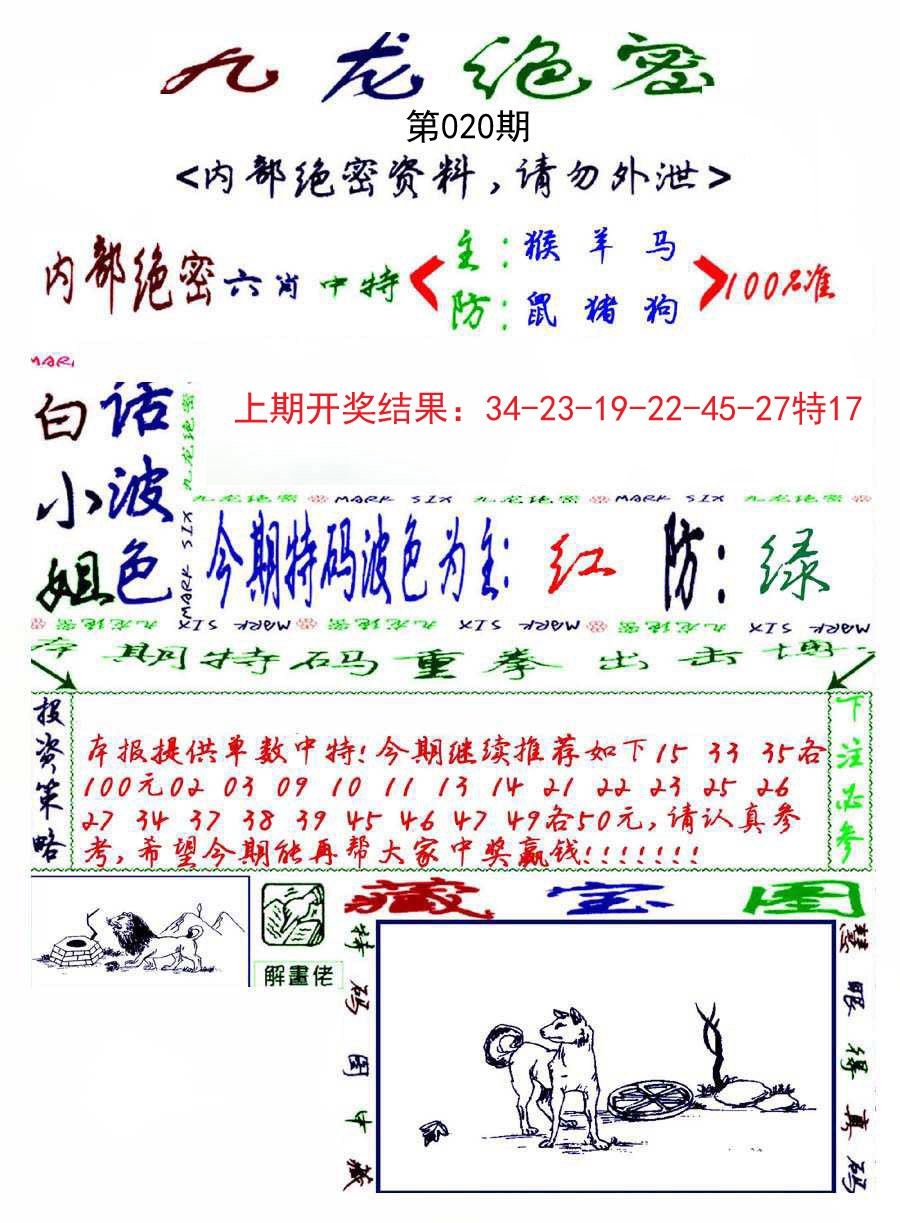 九龙绝密
第020期
<内部绝密资料,请勿外泄>
内部绝密六肖中特
主:猴羊马
防:鼠猪狗
100%准
MARK
白小姐
话波色
九龙绝密
MARK SIX
上期开奖结果：34-23-19-22-45-27特17
九龙绝密 MARK SIX 九龙绝密 MARK SIX 九龙绝密
今期特码波色为主:红 防:绿
九龙绝密 MARK SIX 九龙绝密 MARK SIX 九龙绝密 MARK SIX
本期特码重拳出击
投资策略
本报提供单数中特!今期继续推荐如下15 33 35各
100元02 03 09 10 11 13 14 21 22 23 25 26
27 34 37 38 39 45 46 47 49各50元,请认真参
考,希望今期能再帮大家中奖赢钱!!!!!!!
下注必参
解畫佬
藏宝图
特码图中藏
慧眼得真码